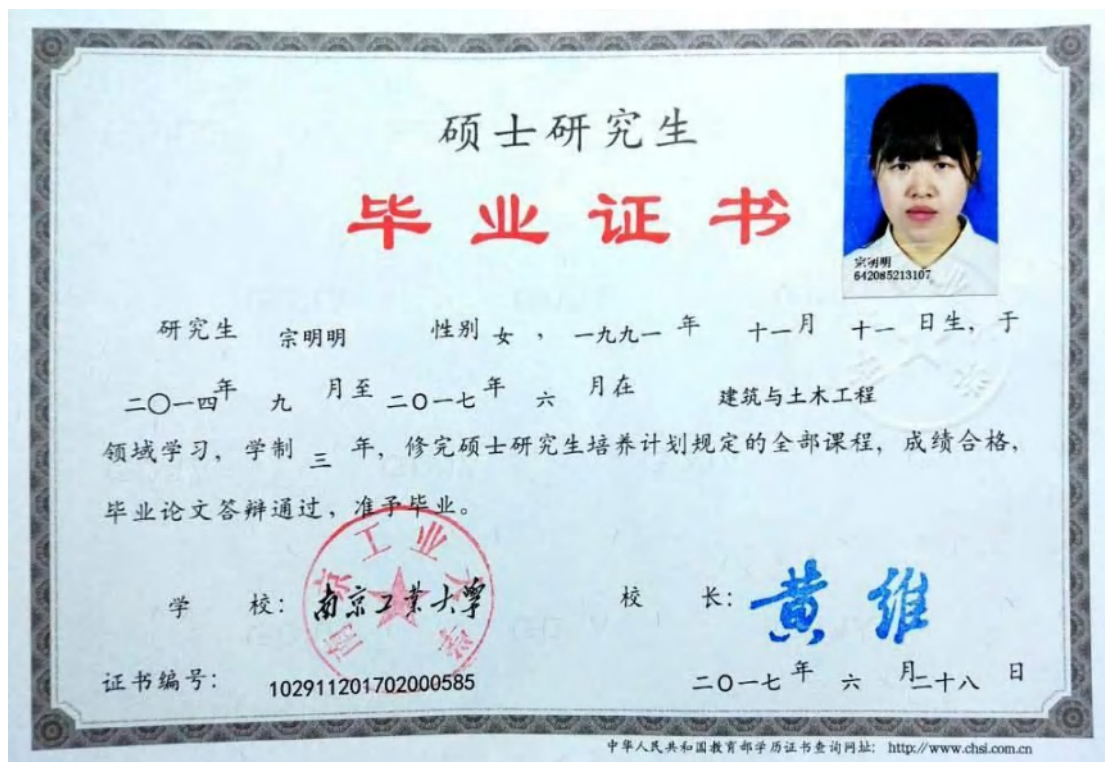 硕士研究生
毕业证书
宗明明
642085213107
研究生 宗明明 性别 女 , 一九九一 年 十一 月 十一 日生, 于
二〇一四 年 九 月至 二〇一七 年 六 月在 建筑与土木工程
领域学习, 学制 三 年, 修完硕士研究生培养计划规定的全部课程, 成绩合格,
毕业论文答辩通过, 准予毕业。
南京工业大学
学 校: 南京工业大学 校 长: 黄维
证书编号: 102911201702000585 二〇一七 年 六 月 二十八 日
中华人民共和国教育部学历证书查询网址: http://www.chsi.com.cn